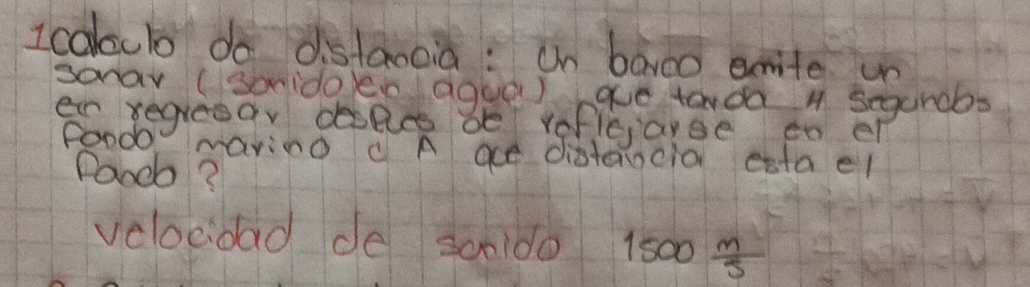 1 calculo de distancia: Un barco emite un
sonar (sonido en agua) que tarda 4 segundos
en regresar despues de reflejarse en el
fondo marino ¿ A que distancia esta el
fondo?
velocidad de sonido 1500 m/s